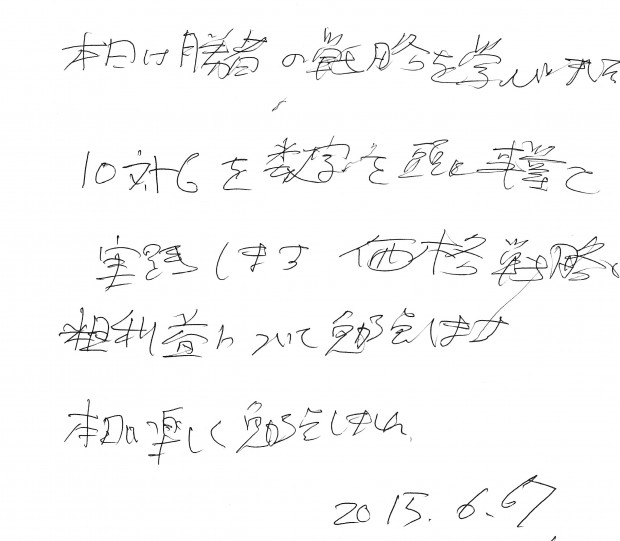 本日は勝者の戦略を学んいました
10対6を数字を頭に事業で
実践します 価格戦略、
粗利益について勉強します
本日は楽しく勉強しました
2015.6.